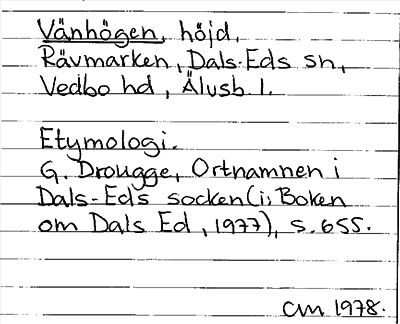 Vänhögen, höjd.
Rävmarken, Dals-Eds sn,
Vedbo hd, Älvsb. l.
Etymologi.
G. Drougge, Ortnamnen i
Dals-Eds socken (i: Boken
om Dals Ed, 1977), s. 655.
cm 1978.